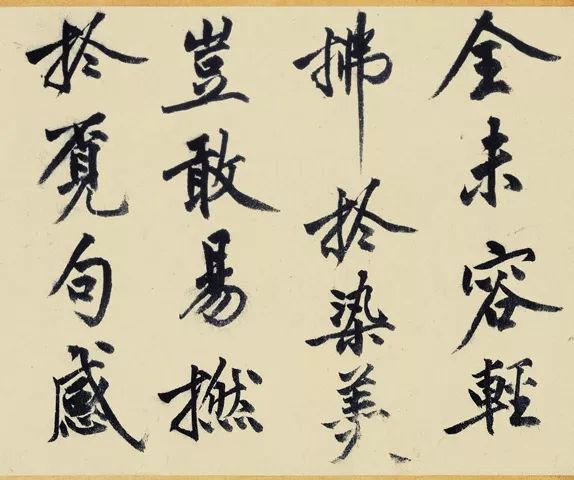 全未容輕
拂於染美
豈敢易撚
於覓句感